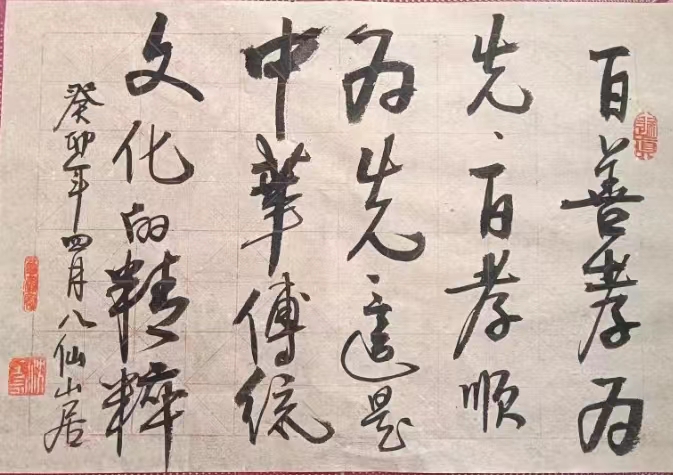 百善孝为
先、百孝顺
为先、這是
中華傳统
文化的精粹
癸卯年四月八仙山居